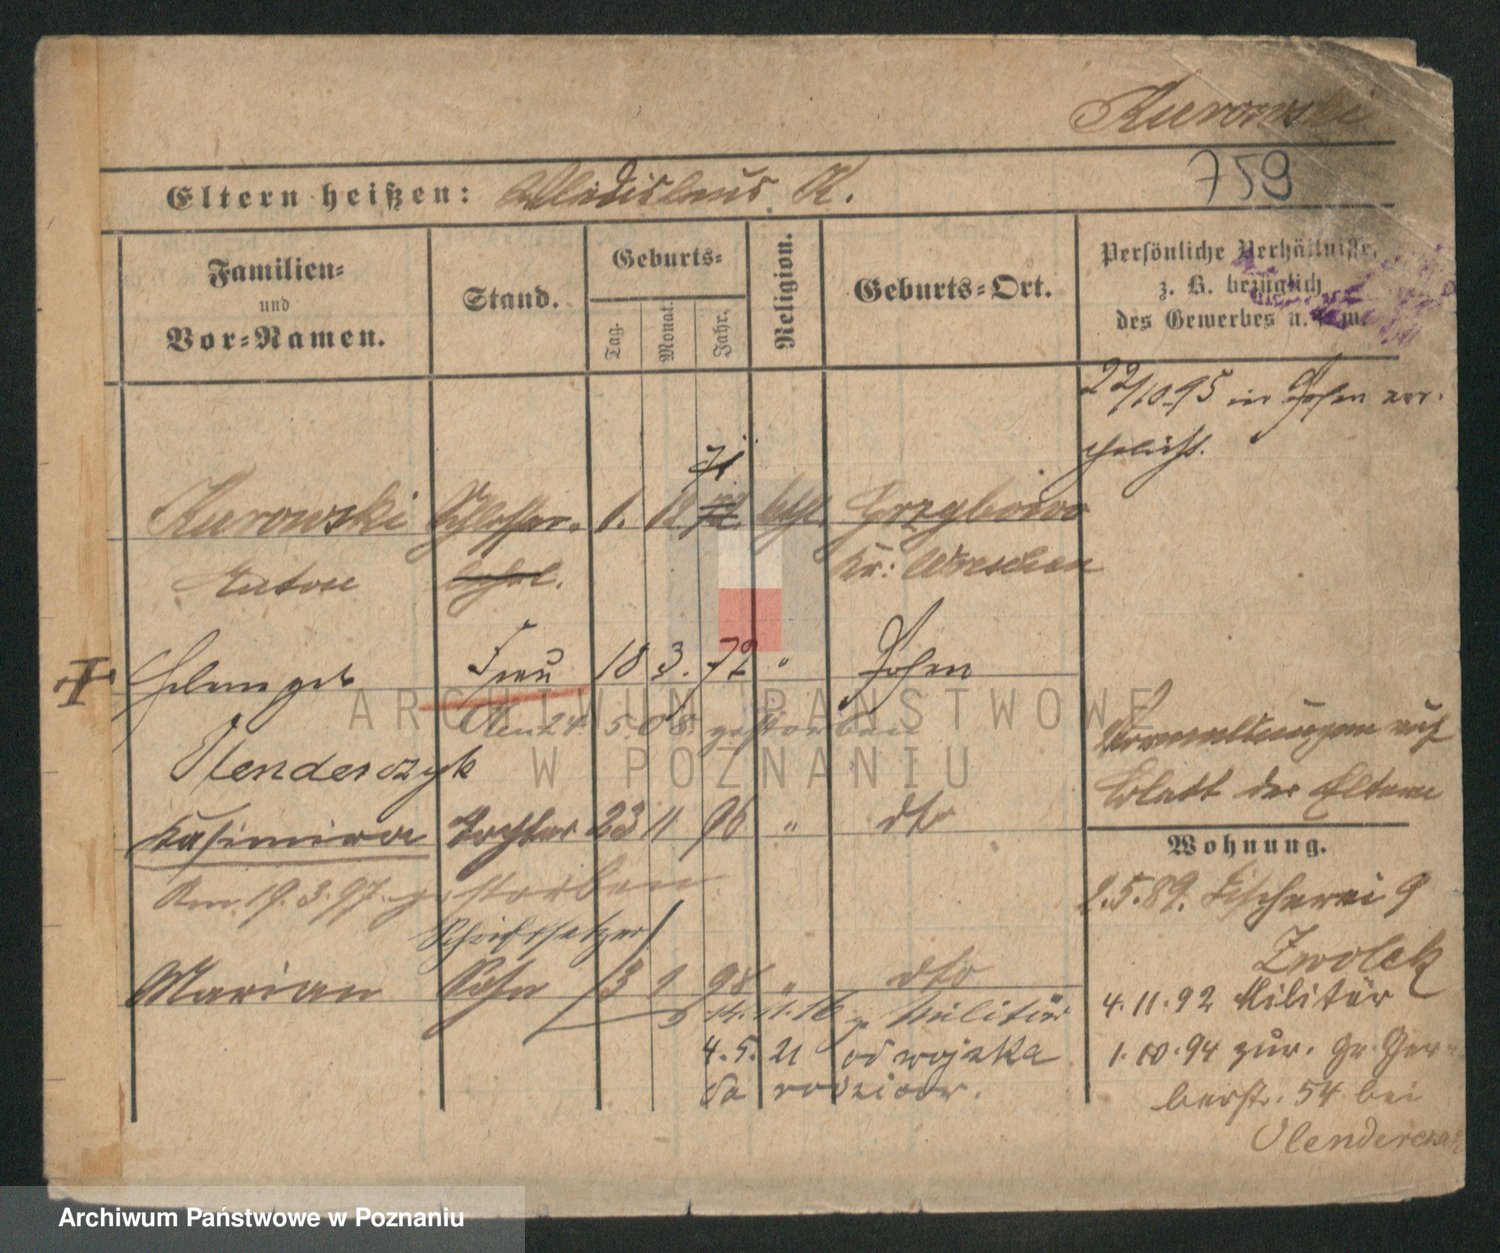 Kurowski
759
Eltern heißen: Wladislaus K.
Familien-
und
Vor-Namen.
Stand.
Geburts-
Tag.
Monat.
Jahr.
Religion.
Geburts-Ort.
Persönliche Verhältnisse,
z. B. bezüglich
des Gewerbes u. s. w.
22/10 95 in Posen ver-
ehelicht.
71
Kurowski Schlosser- 1. 12 72 kath. Grzybowo
Anton lehrl. Kr: Wreschen
Frau 18 3. 72 " Posen
Den 24. 5. 08. gestorben
Olenderczyk
Kasimira Tochter 23 11 96 " dto
Am 19. 3. 97. gestorben
Schriftsetzer
Marian Sohn 13 1 98 " dto
14. 11. 16 z. Militär
4. 5. 21 od wojska
do rodziców.
auf
Blatt der Eltern
Wohnung.
2.5.89. Fischerei 9
Zwolek
4. 11. 92 Militär
1. 10. 94 zur. Gr. Ger-
berstr. 54 bei
Olenderczyk
ARCHIWUM PAŃSTWOWE
W POZNANIU
Archiwum Państwowe w Poznaniu